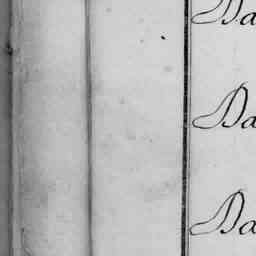 Da
Da
Da